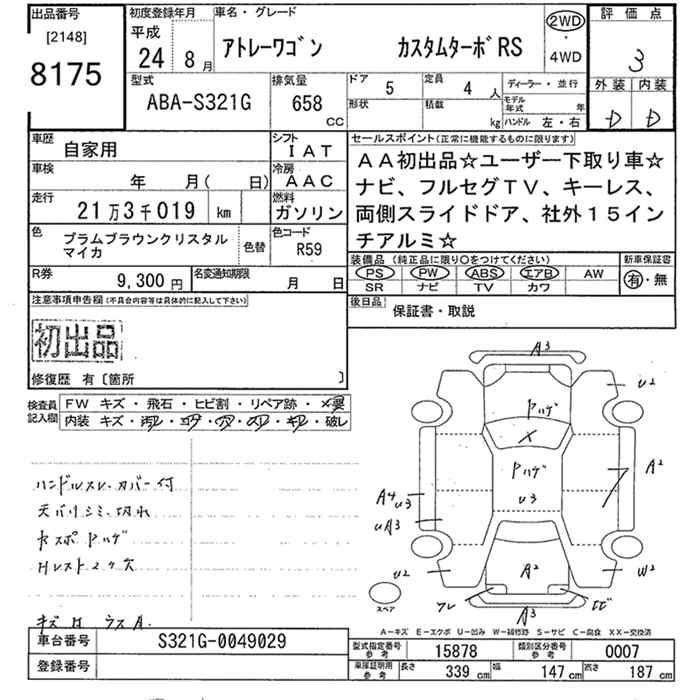 出品番号
[2148]
8175
初度登録年月
平成
24 8月
車名・グレード
アトレーワゴン カスタムターボRS
2WD
・
4WD
評価点
3
外装 内装
D D
型式
ABA-S321G
排気量
658
CC
ドア 5
定員 4 人
形状
積載 kg
ディーラー・並行
モデル年式 年
ハンドル 左・右
車歴
自家用
シフト
IAT
車検
年 月( 日)
冷房
AAC
走行
21万3千019 km
燃料
ガソリン
色
プラムブラウンクリスタル
マイカ
色替
色コード
R59
R券
9,300円
名変通知期限
月 日
セールスポイント(正常に機能するものに限ります)
AA初出品☆ユーザー下取り車☆
ナビ、フルセグTV、キーレス、
両側スライドドア、社外15イン
チアルミ☆
装備品(純正品に限り〇をつけてください)
PS PW ABS エアB AW
SR ナビ TV カワ
新車保証書
有・無
後日品
保証書・取説
注意事項申告欄(不具合内容等は具体的に記入して下さい)
初出品
修復歴 有〔箇所 〕
検査員
記入欄
FW キズ・飛石・ヒビ割・リペア跡・×要
内装 キズ・汚レ・コゲ・穴・スレ・キレ・破レ
ハンドルスレ、カバー付
天バリシミ、切れ
キズ
A3
U2
Pハゲ
X
Pハゲ
U3
A2
A4 U3
UA3
U2
A2
W2
A3
スペア
A-キズ E-エクボ U-凹み W-補修跡 S-サビ C-腐食 XX-交換済
車台番号
S321G-0049029
登録番号
型式指定番号
参考
15878
類別区分番号
参考
0007
車庫証明用
参考
長さ 339 cm
幅 147 cm
高さ 187 cm